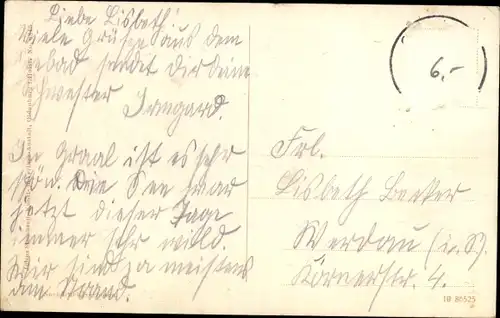 Liebe Lisbeth!
Viele Grüsze aus dem
Seebad sendet Dir Deine
Schwester
Irmgard.
In Graal ist es sehr
schön. Die See war
jetzt dieser Tage
immer sehr wild.
Wir sind ja meistens
am Strand.
6.-
Frl.
Lisbeth Becker
Werdau (i. S.)
Körnerstr. 4.
10 86525